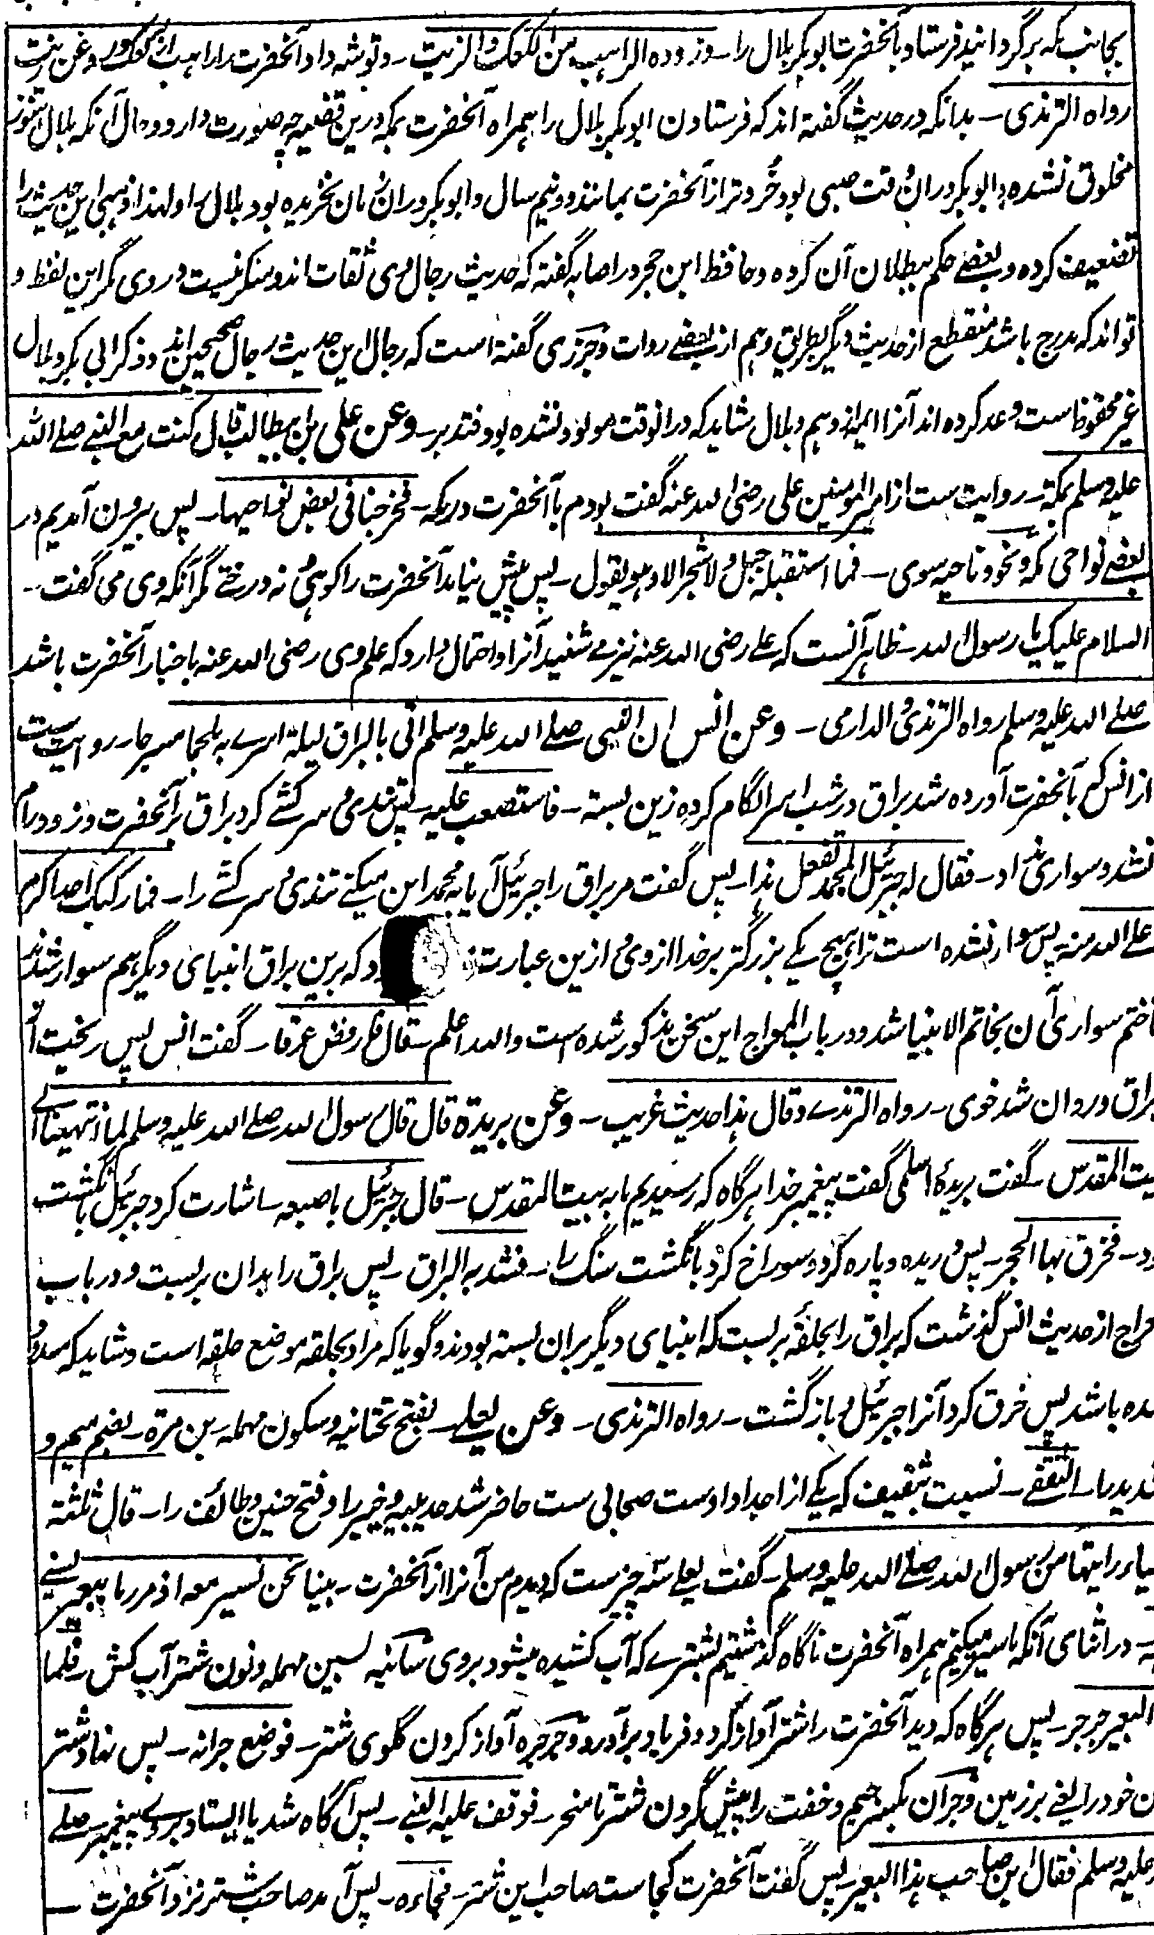 بجانب مکه برگردانید فرستاد بآنحضرت ابوبکر بلال را ـ وزوده الراهب من الکعک والزیت ـ وتوشه داد آنحضرت را راهب از کعک و روغن زیت
رواه الترمذی ـ بدانکه درحدیث گفته اند که فرستادن ابوبکر بلال را همراه آنحضرت بمکه درین قضیه چه صورت دارد وحال آنکه بلال هنوز
مخلوق نشده و ابوبکر دران وقت صبی بود خُردتر از آنحضرت بمانند دو و نیم سال و ابوبکر دران زمان نخریده بود بلال را ولهذا ذهبی این حدیث را
تضعیف کرده و بعضے حکم ببطلان آن کرده وحافظ ابن حجر در اصابه گفته که حدیث رجال وی ثقات اند ومنکر نیست در وی مگر این لفظ و
تواند که مدرج باشد منقطع از حدیث دیگر بطریق وهم از بعضے روات و جَزری گفته است که رجال این حدیث رجال صحیحین اند وذکر ابی بکر وبلال
غیر محفوظ است وعد کرده اند آنرا ائمه از وهم و بلال شاید که درانوقت مولود نشده بود فتدبر ـ وعن علی بن ابیطالب قال کنت مع النبے صلے الله
علیه وسلم بمکة ـ روایت ست از امیرالمومنین علی رضی الله عنه گفت بودم با آنحضرت در مکه ـ فخرجنا فی بعض نواحیها ـ پس بیرون آمدیم در
بعضے نواحی مکه ونحو وناحیه سوی ـ فما استقبله جبل ولا شجر الا وهو یقول ـ پس پیش نیامد آنحضرت را کوهی نه درختے مگر آنکه وی می گفت ـ
السلام علیک یا رسول الله ـ ظاهر آنست که علے رضی الله عنه نیز مے شنید آنرا واحتمال دارد که علم وی رضی الله عنه باخبار آنحضرت باشد
صلے الله علیه وسلم رواه الترمذی والدارمی ـ وعن انس ان النبی صلے الله علیه وسلم اتی بالبراق لیلة اسرے به ملجما مسرجا ـ روایت ست
از انس که بآنحضرت آورده شد براق در شب اسرا لگام کرده زین بسته ـ فاستصعب علیه ـ پس تندی و سرکشے کرد براق بر آنحضرت وزود رام
نشد و سواری نداد ـ فقال له جبرئیل ابمحمد تفعل هذا ـ پس گفت مر براق را جبرئیل آیا به محمد این میکنے تندی و سرکشے را ـ فما رکبک احد اکرم
علے الله منه پس سوار نشده است ترا هیچ یکے بزرگتر بر خدا از وی ازین عبارت ود که برین براق انبیای دیگر هم سوار شدند
تاختم سواری آن بخاتم الانبیا شد ودر باب المعراج این سخن مذکور شده است والله اعلم ـ قال فارفض عرقا ـ گفت انس پس ریخت از
براق و روان شد خوی ـ رواه الترمذے وقال هذا حدیث غریب ـ وعن بریدة قال قال رسول الله صلے الله علیه وسلم لما انتهینا الے
بیت المقدس ـ گفت بریدهٔ اسلمی گفت پیغمبر خدا هرگاه که رسیدیم ما به بیت المقدس ـ قال جبرئیل باصبعه ـ اشارت کرد جبرئیل بانگشت
ود ـ فخرق بها الحجر ـ پس دریده وپاره کرد وسوراخ کرد بانگشت سنگ را ـ فشد به البراق ـ پس براق را بدان بربست ودر باب
معراج از حدیث انس گذشت که براق را بحلقه بربست که انبیای دیگر بران بسته بودند و گویا که مراد بحلقه موضع حلقه است وشاید که مسدود
شده باشد پس خرق کرد آنرا جبرئیل و بازگشت ـ رواه الترمذی ـ وعن یعلے ـ بفتح تحتانیه وسکون مهمله ـ بن مرة ـ بضم میم و
تشدید را ـ الثقفے ـ نسبت بثقیف که یکے از اجداد اوست صحابی ست حاضر شد حدیبیه وخیبر را وفتح حنین وطائف را ـ قال ثلثة
اشیاء رایتها من رسول الله صلے الله علیه وسلم ـ گفت یعلے سه چیز ست که دیدم من آنرا از آنحضرت ـ بینا نحن نسیر معه اذ مررنا ببعیر یسنے
علیه ـ در اثنای آنکه ما سیر میکنیم همراه آنحضرت ناگاه گذشتیم بشترے که آب کشیده میشود بروی سانیه بسین مهمله ونون شتر آب کش ـ فلما
راه البعیر جرجر ـ پس هرگاه که دید آنحضرت را شتر آواز کرد وفریاد برآورد وجرجره آواز کردن گلوی شتر ـ فوضع جرانه ـ پس نهاد شتر
گردن خود را یعنے بر زمین وجران بکسر جیم وخفت را پیش گردن شتر تا منحر ـ فوقف علیه النبے ـ پس آگاه شد یا ایستاد بروے پیغمبر صلے
الله علیه وسلم فقال این صاحب هذا البعیر پس گفت آنحضرت کجاست صاحب این شتر ـ فجاءه ـ پس آمد صاحب شتر نزد آنحضرت ـ